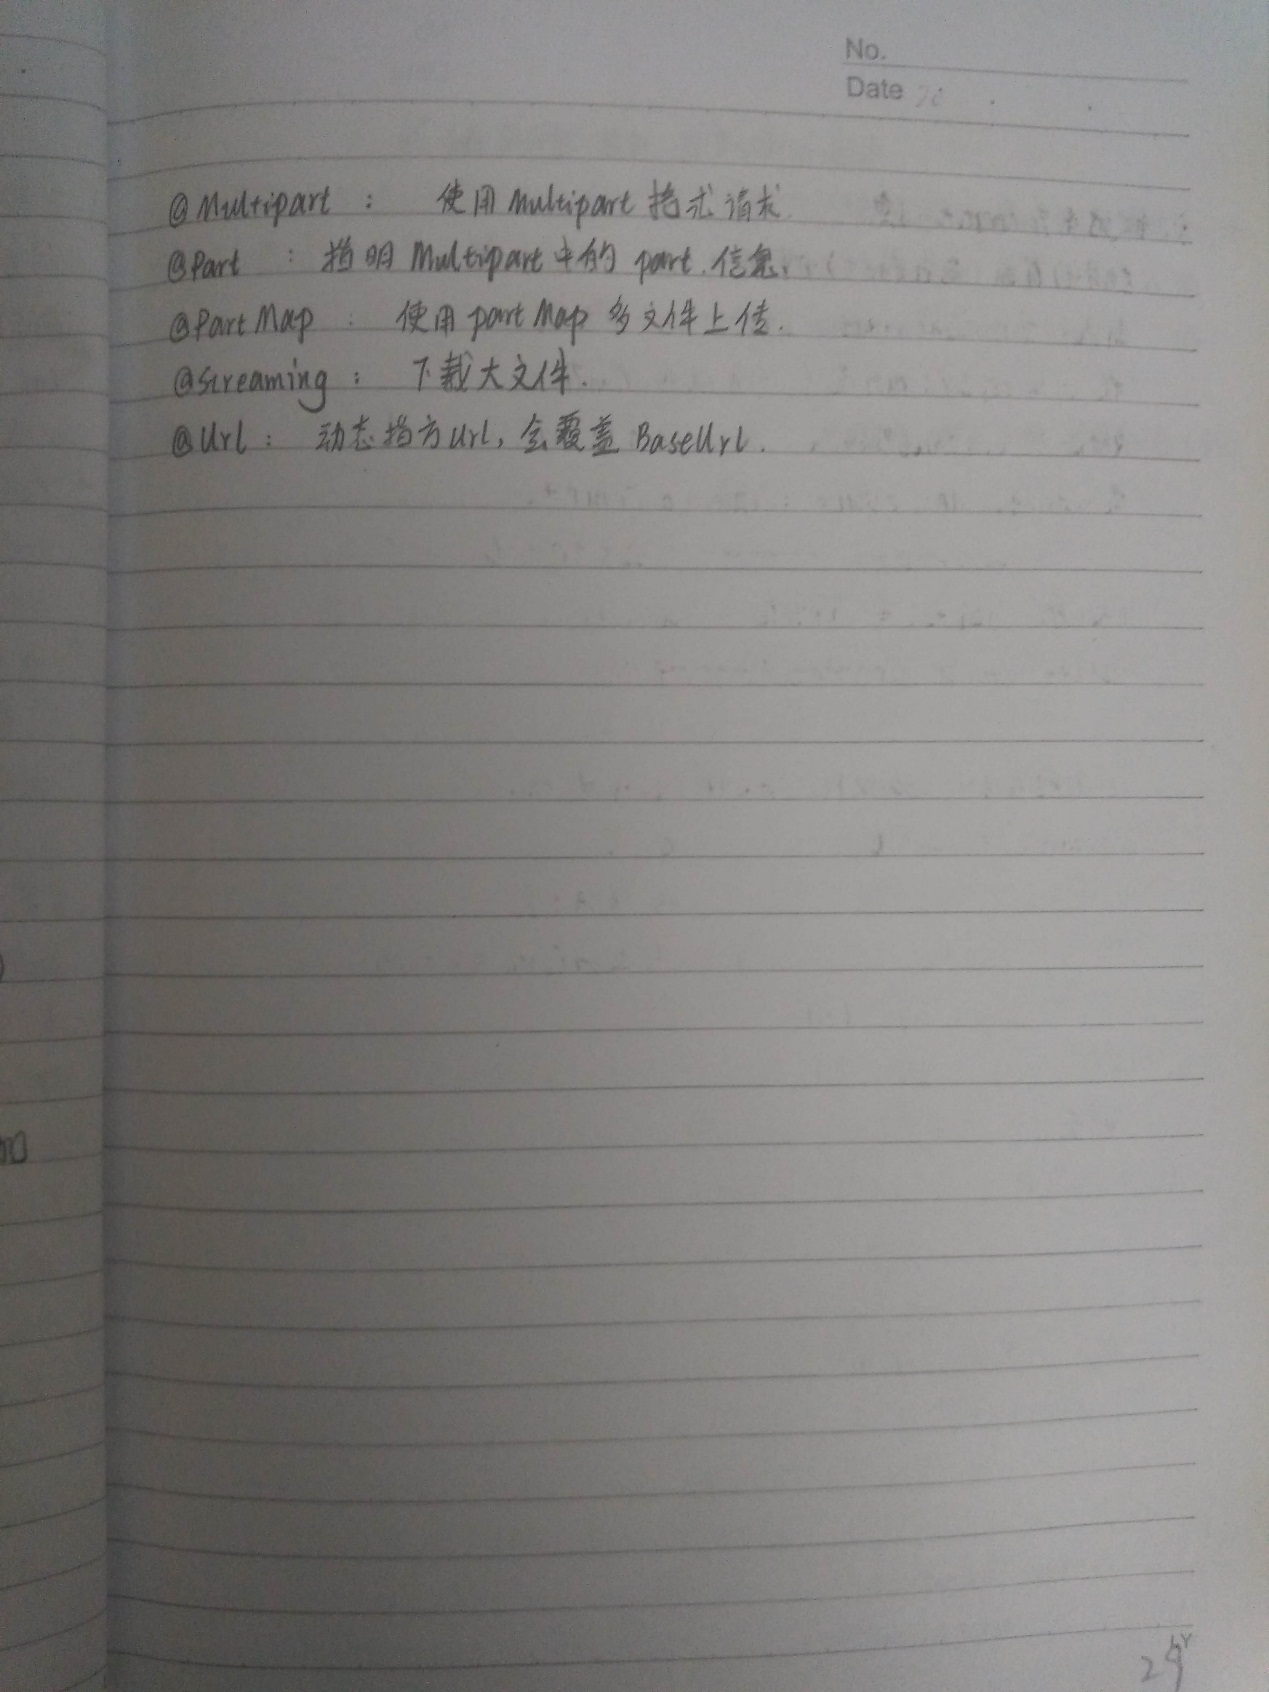 No.
Date 20 . .
@Multipart : 使用 Multipart 格式请求
@Part : 指明 Multipart 中的 part 信息.
@PartMap : 使用 partMap 多文件上传.
@Streaming : 下载大文件.
@Url : 动态指方 Url, 会覆盖 BaseUrl.
加